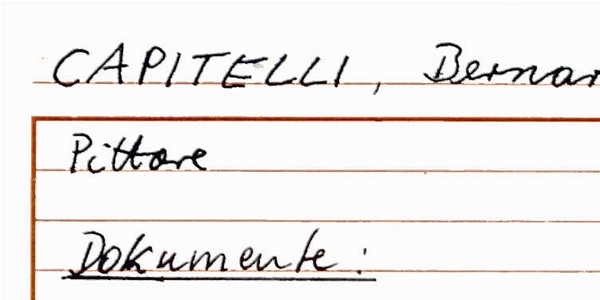 CAPITELLI, Bernar
Pittore
Dokumente: